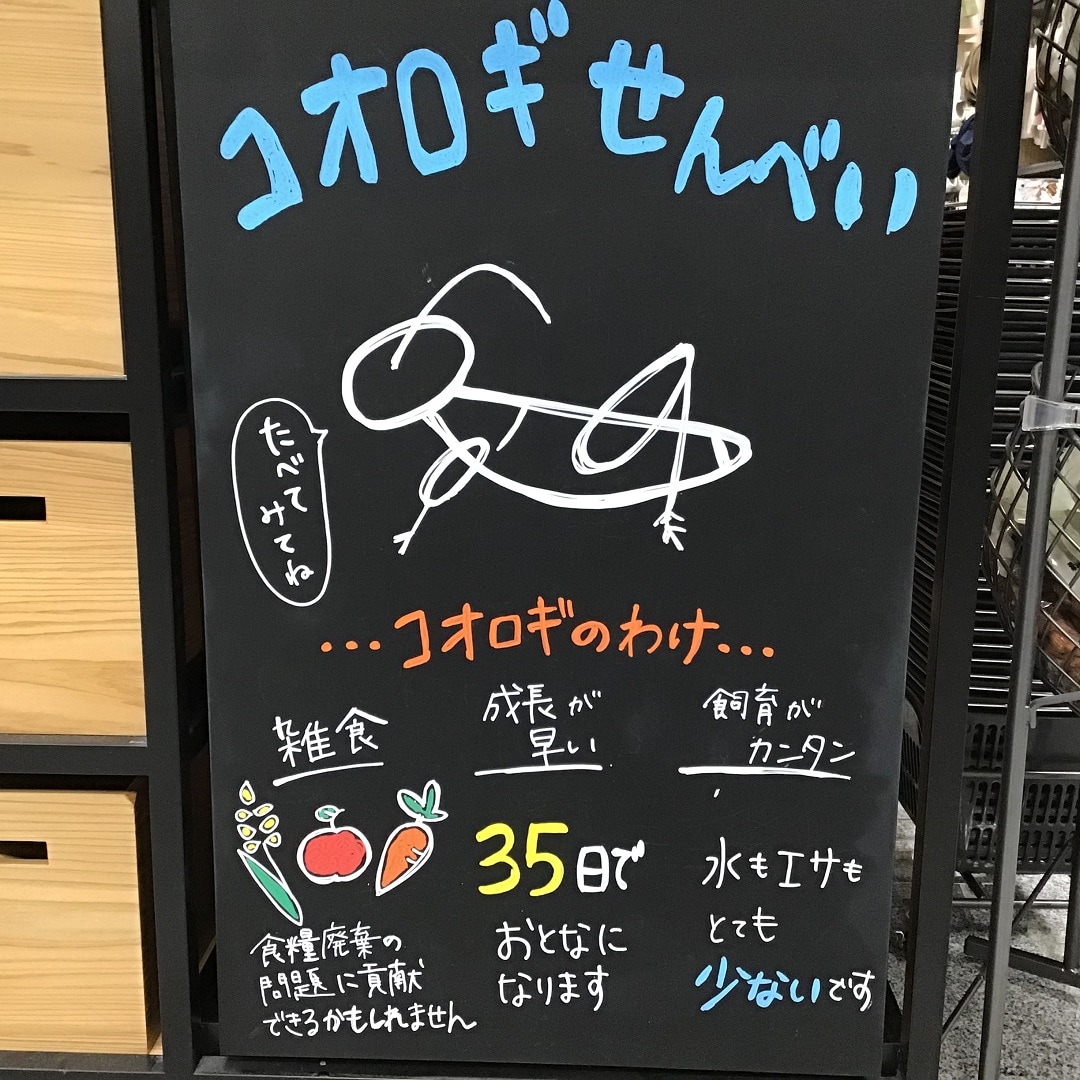 コオロギせんべい
たべて
みてね
...コオロギのわけ...
雑食
食糧廃棄の
問題に貢献
できるかもしれません
成長が
早い
35日で
おとなに
なります
飼育が
カンタン
水もエサも
とても
少ないです